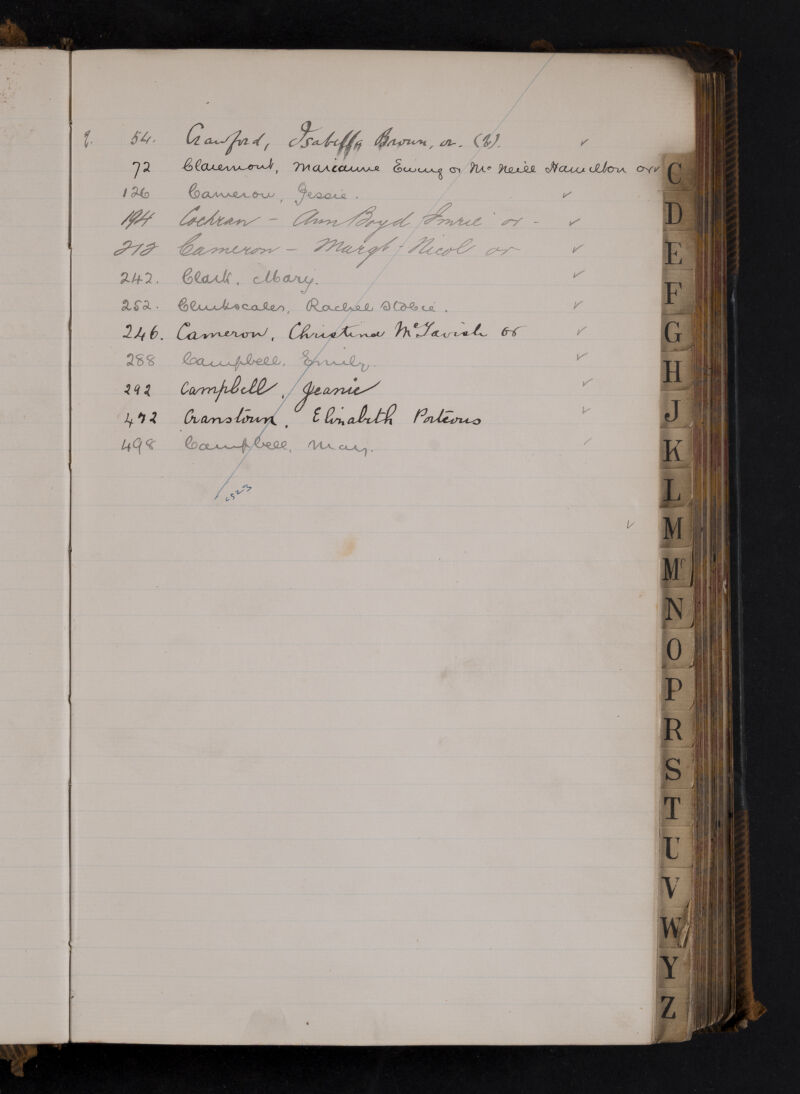 54. Crawford, Isabella Brown, or. (2). ✓
72 Claremont, Marianne Ewing or Mc Neill Hamilton or ✓
126 Cameron, Jessie. ✓
194 Cochran - Ann Boyd Imrie or - ✓
212 Cameron - Margt Nicol or ✓
242. Clark, Mary. ✓
252. Clinkscales, Rachel Stobie. ✓
246. Cameron, Christina McTavish or ✓
288 Campbell, Emily. ✓
292 Campbell, Jeanie ✓
472 Cranstoun, Elizabeth Porteous ✓
498 Campbell, May. ✓
✓
C
D
E
F
G
H
J
K
L
M
Mc
N
O
P
R
S
T
U
V
W
Y
Z